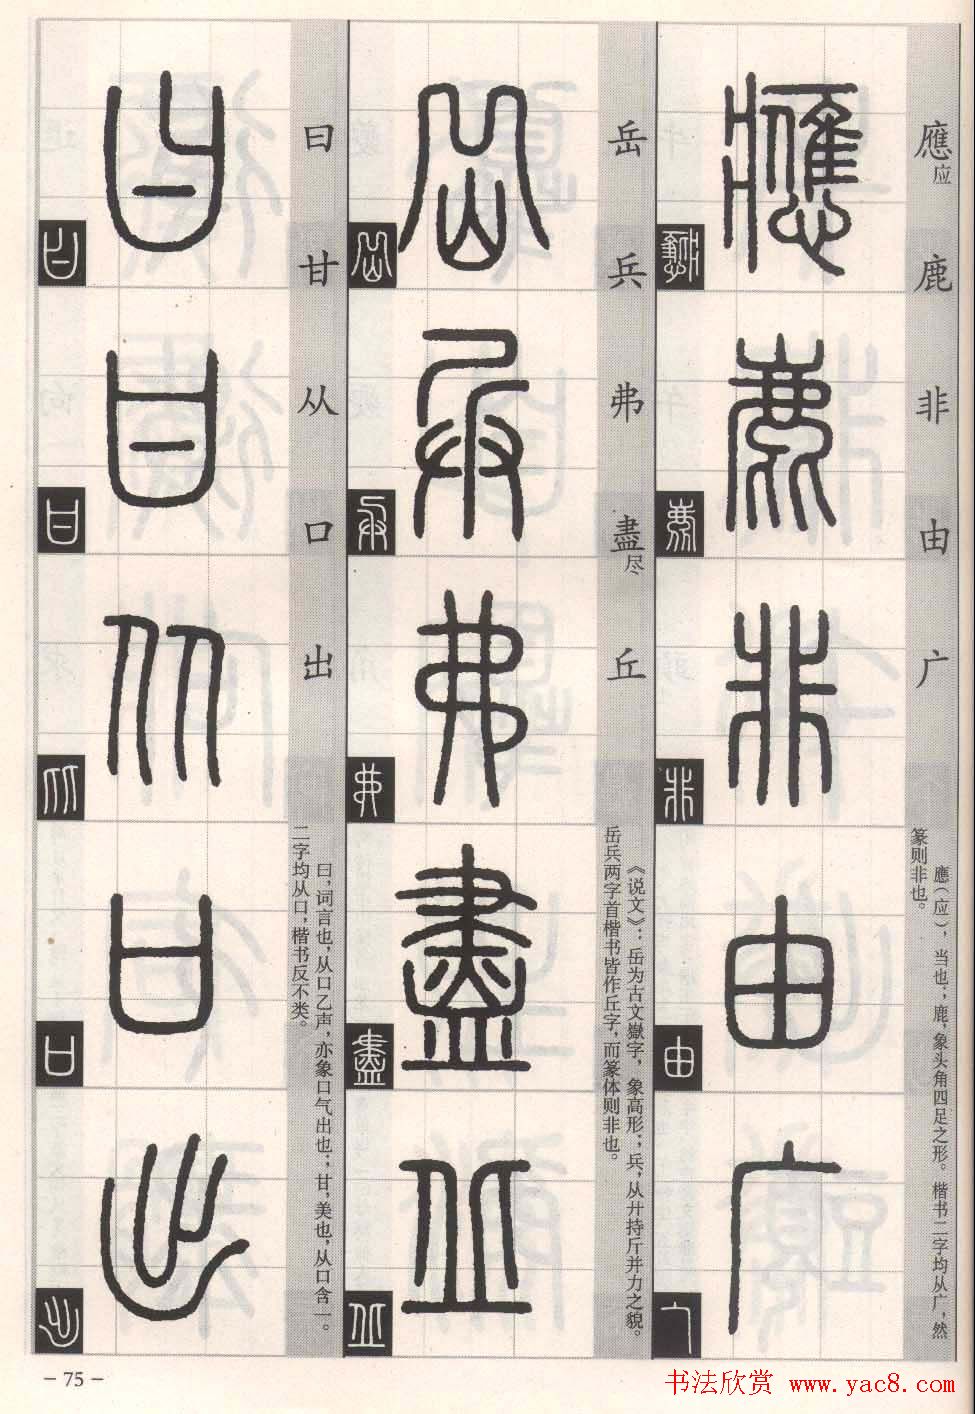 應应 鹿 非 由 广
應（应），当也；鹿，象头角四足之形。楷书二字均从广，然
篆则非也。
岳 兵 弗 盡尽 丘
《说文》：岳为古文嶽字，象高形；兵，从廾持斤并力之貌。
岳兵两字首楷书皆作丘字，而篆体则非也。
曰 甘 从 口 出
曰，词言也，从口乙声，亦象口气出也；甘，美也，从口含一。
二字均从口，楷书反不类。
- 75 -
书法欣赏 www.yac8.com